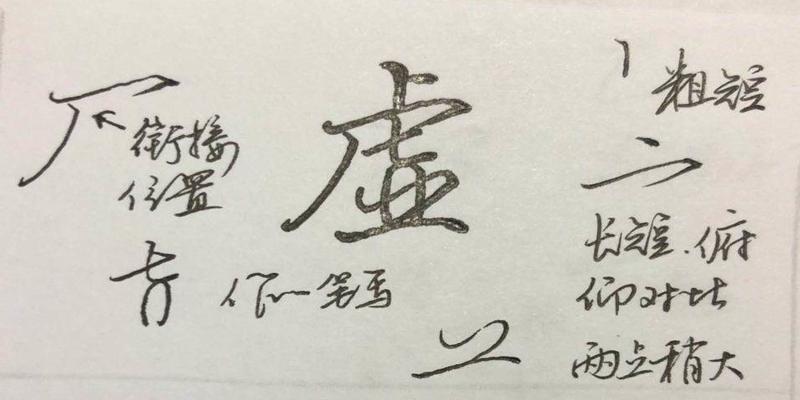 虚
衔接
位置
粗短
长短、俯
仰对比
两点稍大